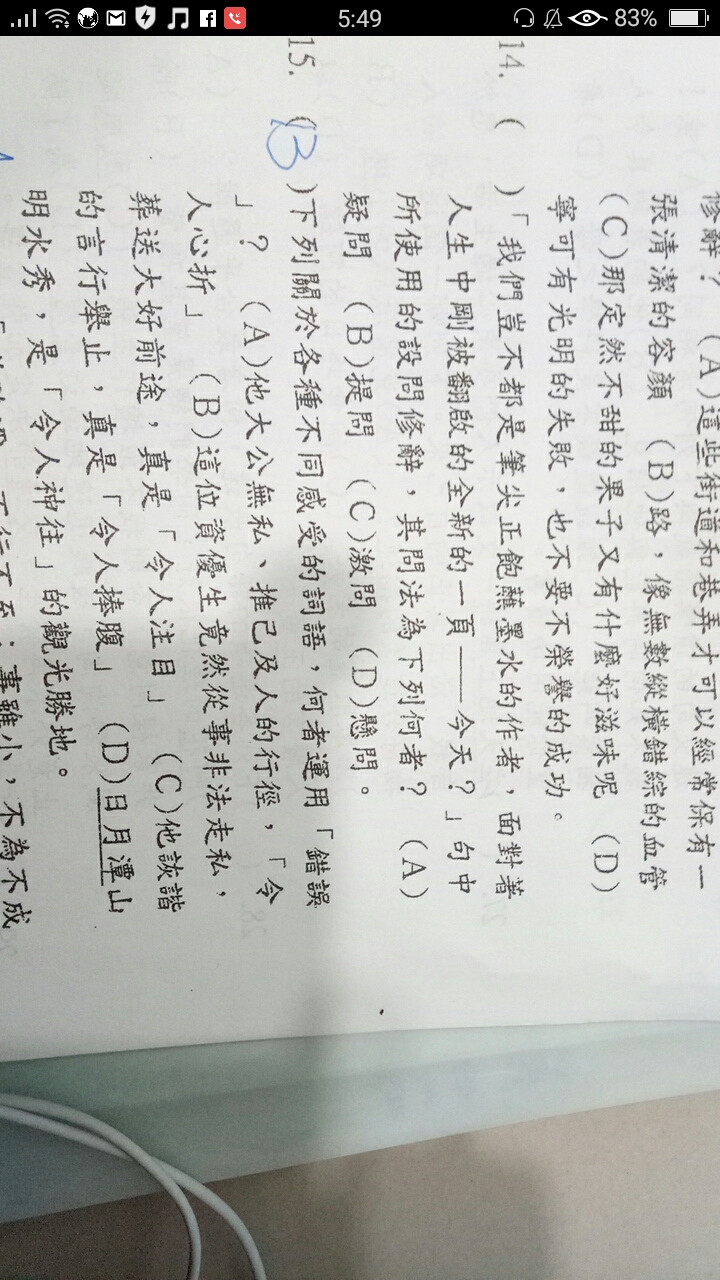 5:49
83%
修辭？ (A)這些街道和巷弄才可以經常保有一
張清潔的容顏 (B)路，像無數縱橫錯綜的血管
(C)那定然不甜的果子又有什麼好滋味呢 (D)
寧可有光明的失敗，也不要不榮譽的成功。
14. ( )「我們豈不都是筆尖正飽蘸墨水的作者，面對著
人生中剛被翻啟的全新的一頁——今天？」句中
所使用的設問修辭，其問法為下列何者？ (A)
疑問 (B)提問 (C)激問 (D)懸問。
15. (B)下列關於各種不同感受的詞語，何者運用「錯誤
」？ (A)他大公無私、推己及人的行徑，「令
人心折」 (B)這位資優生竟然從事非法走私，
葬送大好前途，真是「令人注目」 (C)他詼諧
的言行舉止，真是「令人捧腹」 (D)日月潭山
明水秀，是「令人神往」的觀光勝地。
不行不至；事雖小，不為不成